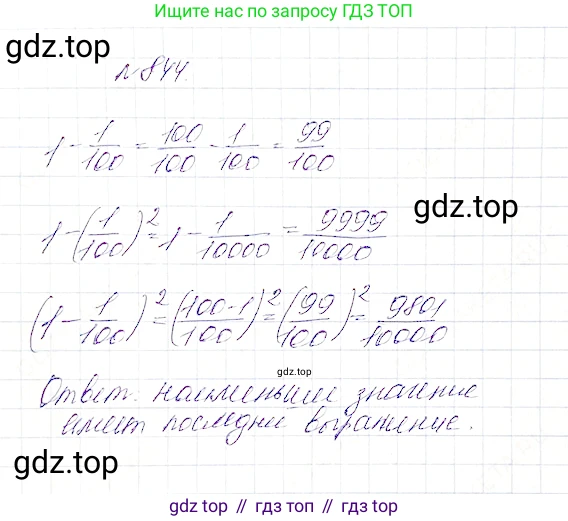 Ищите нас по запросу ГДЗ ТОП
gdz.top
№844.
1 - 1/100 = 100/100 - 1/100 = 99/100
gdz.top
1 - (1/100)² = 1 - 1/10000 = 9999/10000
(1 - 1/100)² = (100-1/100)² = (99/100)² = 9801/10000
gdz.top
Ответ: наименьшее значение
имеет последни выражение.
gdz.top
gdz.top // гдз топ // гдз.top